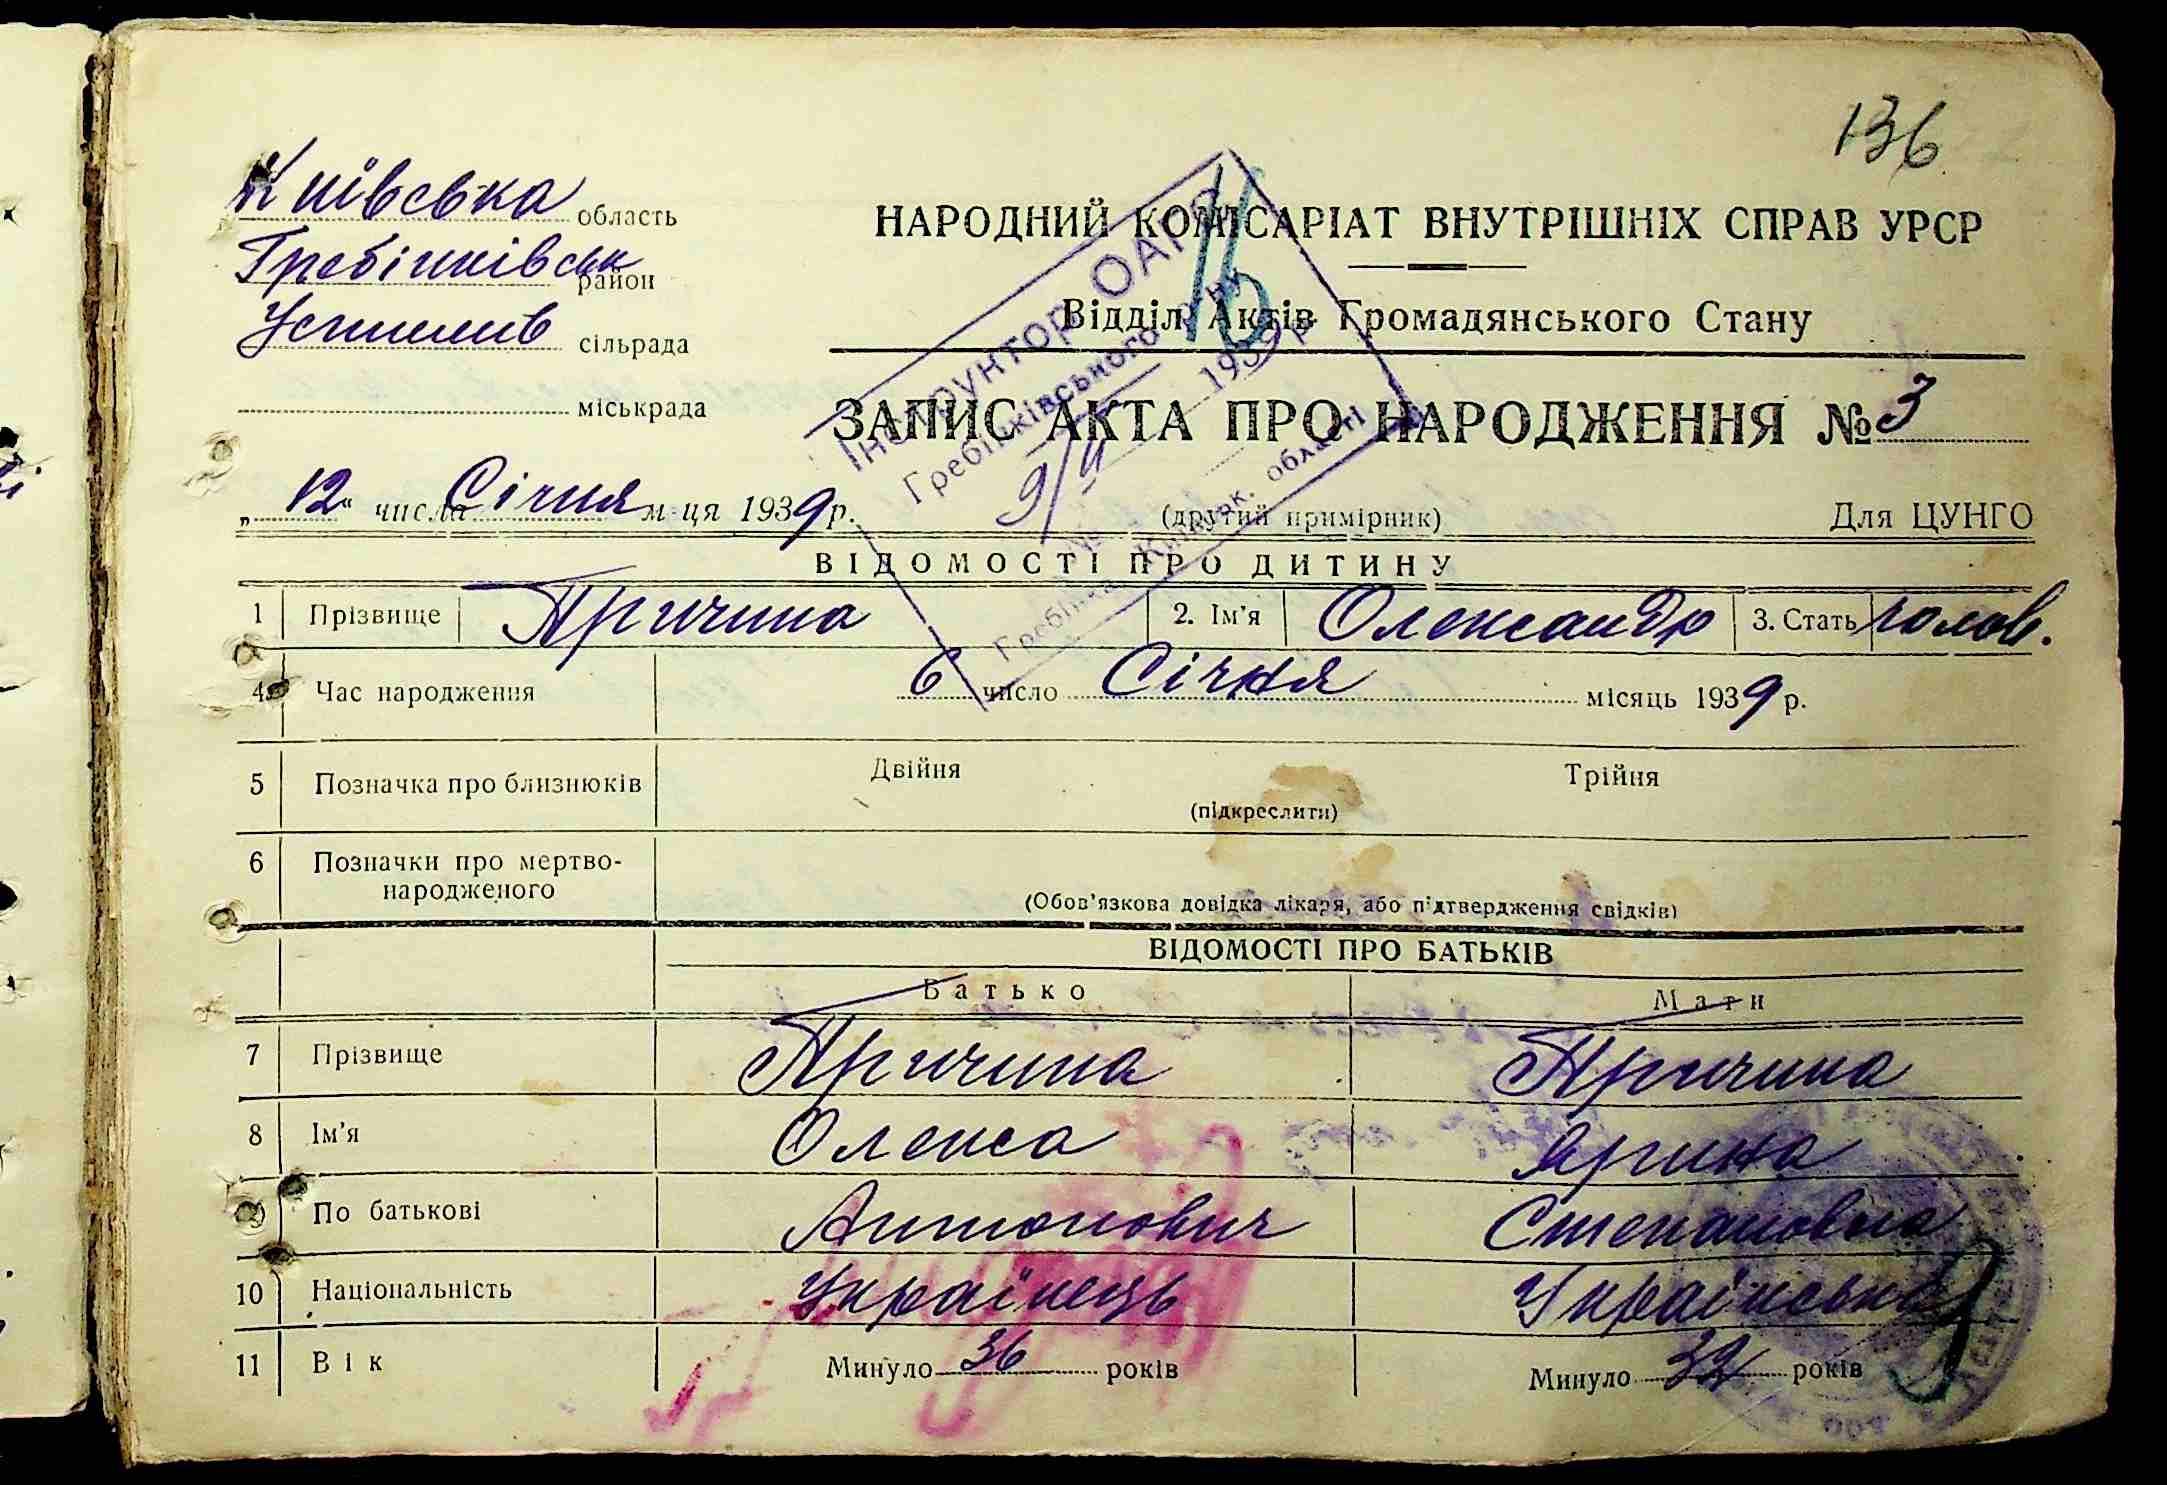 136
Київська область
Гребінківськ район
Устимів сільрада
міськрада
НАРОДНИЙ КОМІСАРІАТ ВНУТРІШНІХ СПРАВ УРСР
Відділ Актів Громадянського Стану
16
Інструктор ОАГС
Гребінківського
9/II 1939 р.
Гребінка, Київськ. області
ЗАПИС АКТА ПРО НАРОДЖЕННЯ № 3
„12“ числа Січня м-ця 1939 р.
(другий примірник)
Для ЦУНГО
ВІДОМОСТІ ПРО ДИТИНУ
1 Прізвище Причина 2. Ім'я Олександр 3. Стать чолов.
4 Час народження 6 число Січня місяць 1939 р.
5 Позначка про близнюків Двійня Трійня
(підкреслити)
6 Позначки про мертво-
народженого
(Обов'язкова довідка лікаря, або підтвердження свідків)
ВІДОМОСТІ ПРО БАТЬКІВ
Батько Мати
7 Прізвище Причина Причина
8 Ім'я Олекса Ярина
9 По батькові Антонович Степановна
10 Національність Українець Українська
11 Вік Минуло 36 років Минуло 32 років